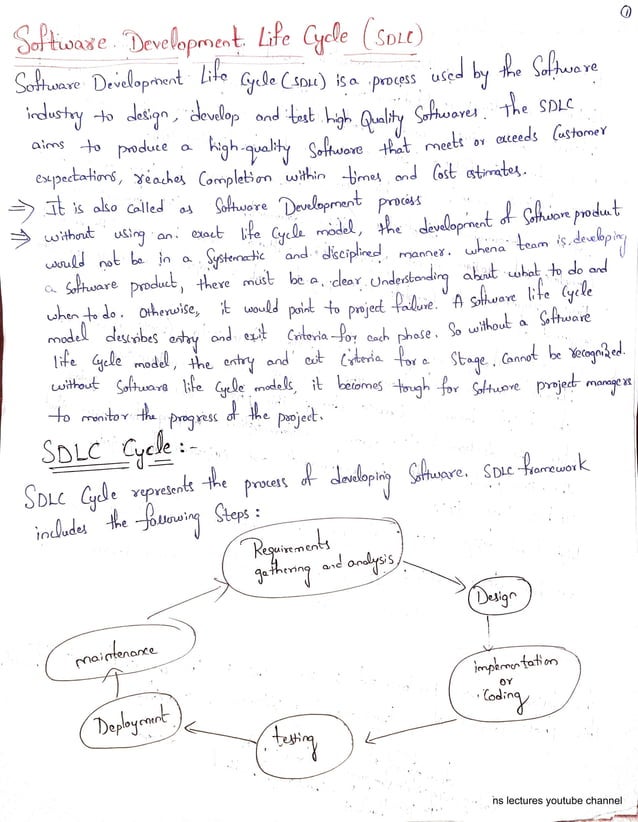 ①
Software Development Life Cycle (SDLC)
Software Development Life Cycle (SDLC) is a process used by the Software
industry to design, develop and test high Quality Softwares. The SDLC
aims to produce a high-quality Software that meets or exceeds Customer
expectations, reaches Completion within times and Cost estimates.
⇒ It is also called as Software Development process
⇒ without using an exact life Cycle model, the development of Software product
would not be in a Systematic and disciplined manner. when a team is developing
a Software product, there must be a clear Understanding about what to do and
when to do. Otherwise, it would point to project failure. A software life Cycle
model describes entry and exit Criteria for each phase. So without a Software
life Cycle model, the entry and exit Criteria for a Stage, Cannot be recognized.
without Software life Cycle models, it becomes tough for Software project managers
to monitor the progress of the project.
SDLC Cycle :-
SDLC Cycle represents the process of developing Software. SDLC framework
includes the following Steps :
Requirements
gathering and analysis
Design
implementation
or
Coding
testing
Deployment
maintenance
ns lectures youtube channel